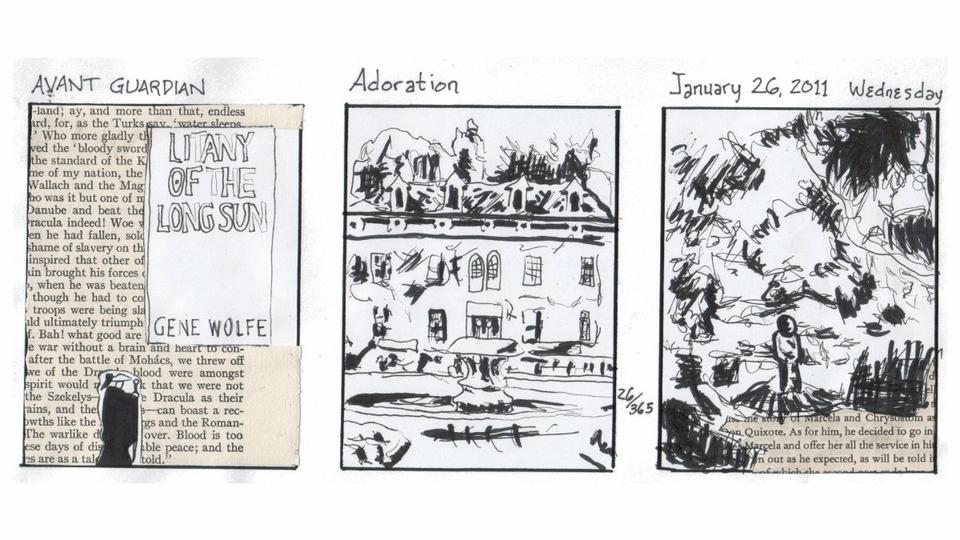 AVANT GUARDIAN
Adoration
January 26, 2011 Wednesday
-land; ay, and more than that, endless
ard, for, as the Turks say, 'water sleeps,
' Who more gladly th
ved the 'bloody sword
the standard of the K
me of my nation, the
Wallach and the Mag
ho was it but one of m
Danube and beat the
racula indeed! Woe w
en he had fallen, sold
shame of slavery on th
inspired that other of
in brought his forces
, when he was beaten
though he had to co
troops were being sla
ld ultimately triumph
f. Bah! what good are
e war without a brain and heart to con-
after the battle of Mohács, we threw off
we of the Dr blood were amongst
spirit would n k that we were not
the Szekelys— Dracula as their
ains, and the s—can boast a rec-
wths like the rgs and the Roman-
The warlike d over. Blood is too
se days of dis able peace; and the
es are as a tal told."
LITANY
OF THE
LONG SUN
GENE WOLFE
26/365
the story of Marcela and Chrysostom as
on Quixote. As for him, he decided to go in
Marcela and offer her all the service in his
n out as he expected, as will be told i
of which the second part